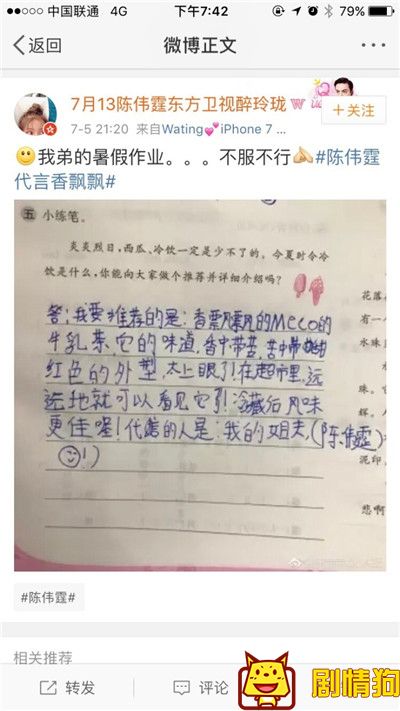 中国联通 4G 下午7:42 79%
返回 微博正文
7月13陈伟霆东方卫视醉玲珑
+关注
7-5 21:20 来自Wating💕iPhone 7 ...
🙂我弟的暑假作业。。。不服不行👏#陈伟霆
代言香飘飘#
五 小练笔。
炎炎烈日,西瓜、冷饮一定是少不了的。今夏时令冷
饮是什么,你能向大家做个推荐并详细介绍吗?
答:我要推荐的是:香飘飘的Meco的
牛乳茶,它的味道,香中带苦,苦中带
红色的外型,太上眼了!在超市里,远
远地就可以看见它了!冷藏后风味
更佳喔!代言的人是:我的姐夫,(陈伟霆)
!)
花落
有一
水珠
珠。
辉。
泥印
悲啊
#陈伟霆#
相关推荐
转发 评论
剧情狗